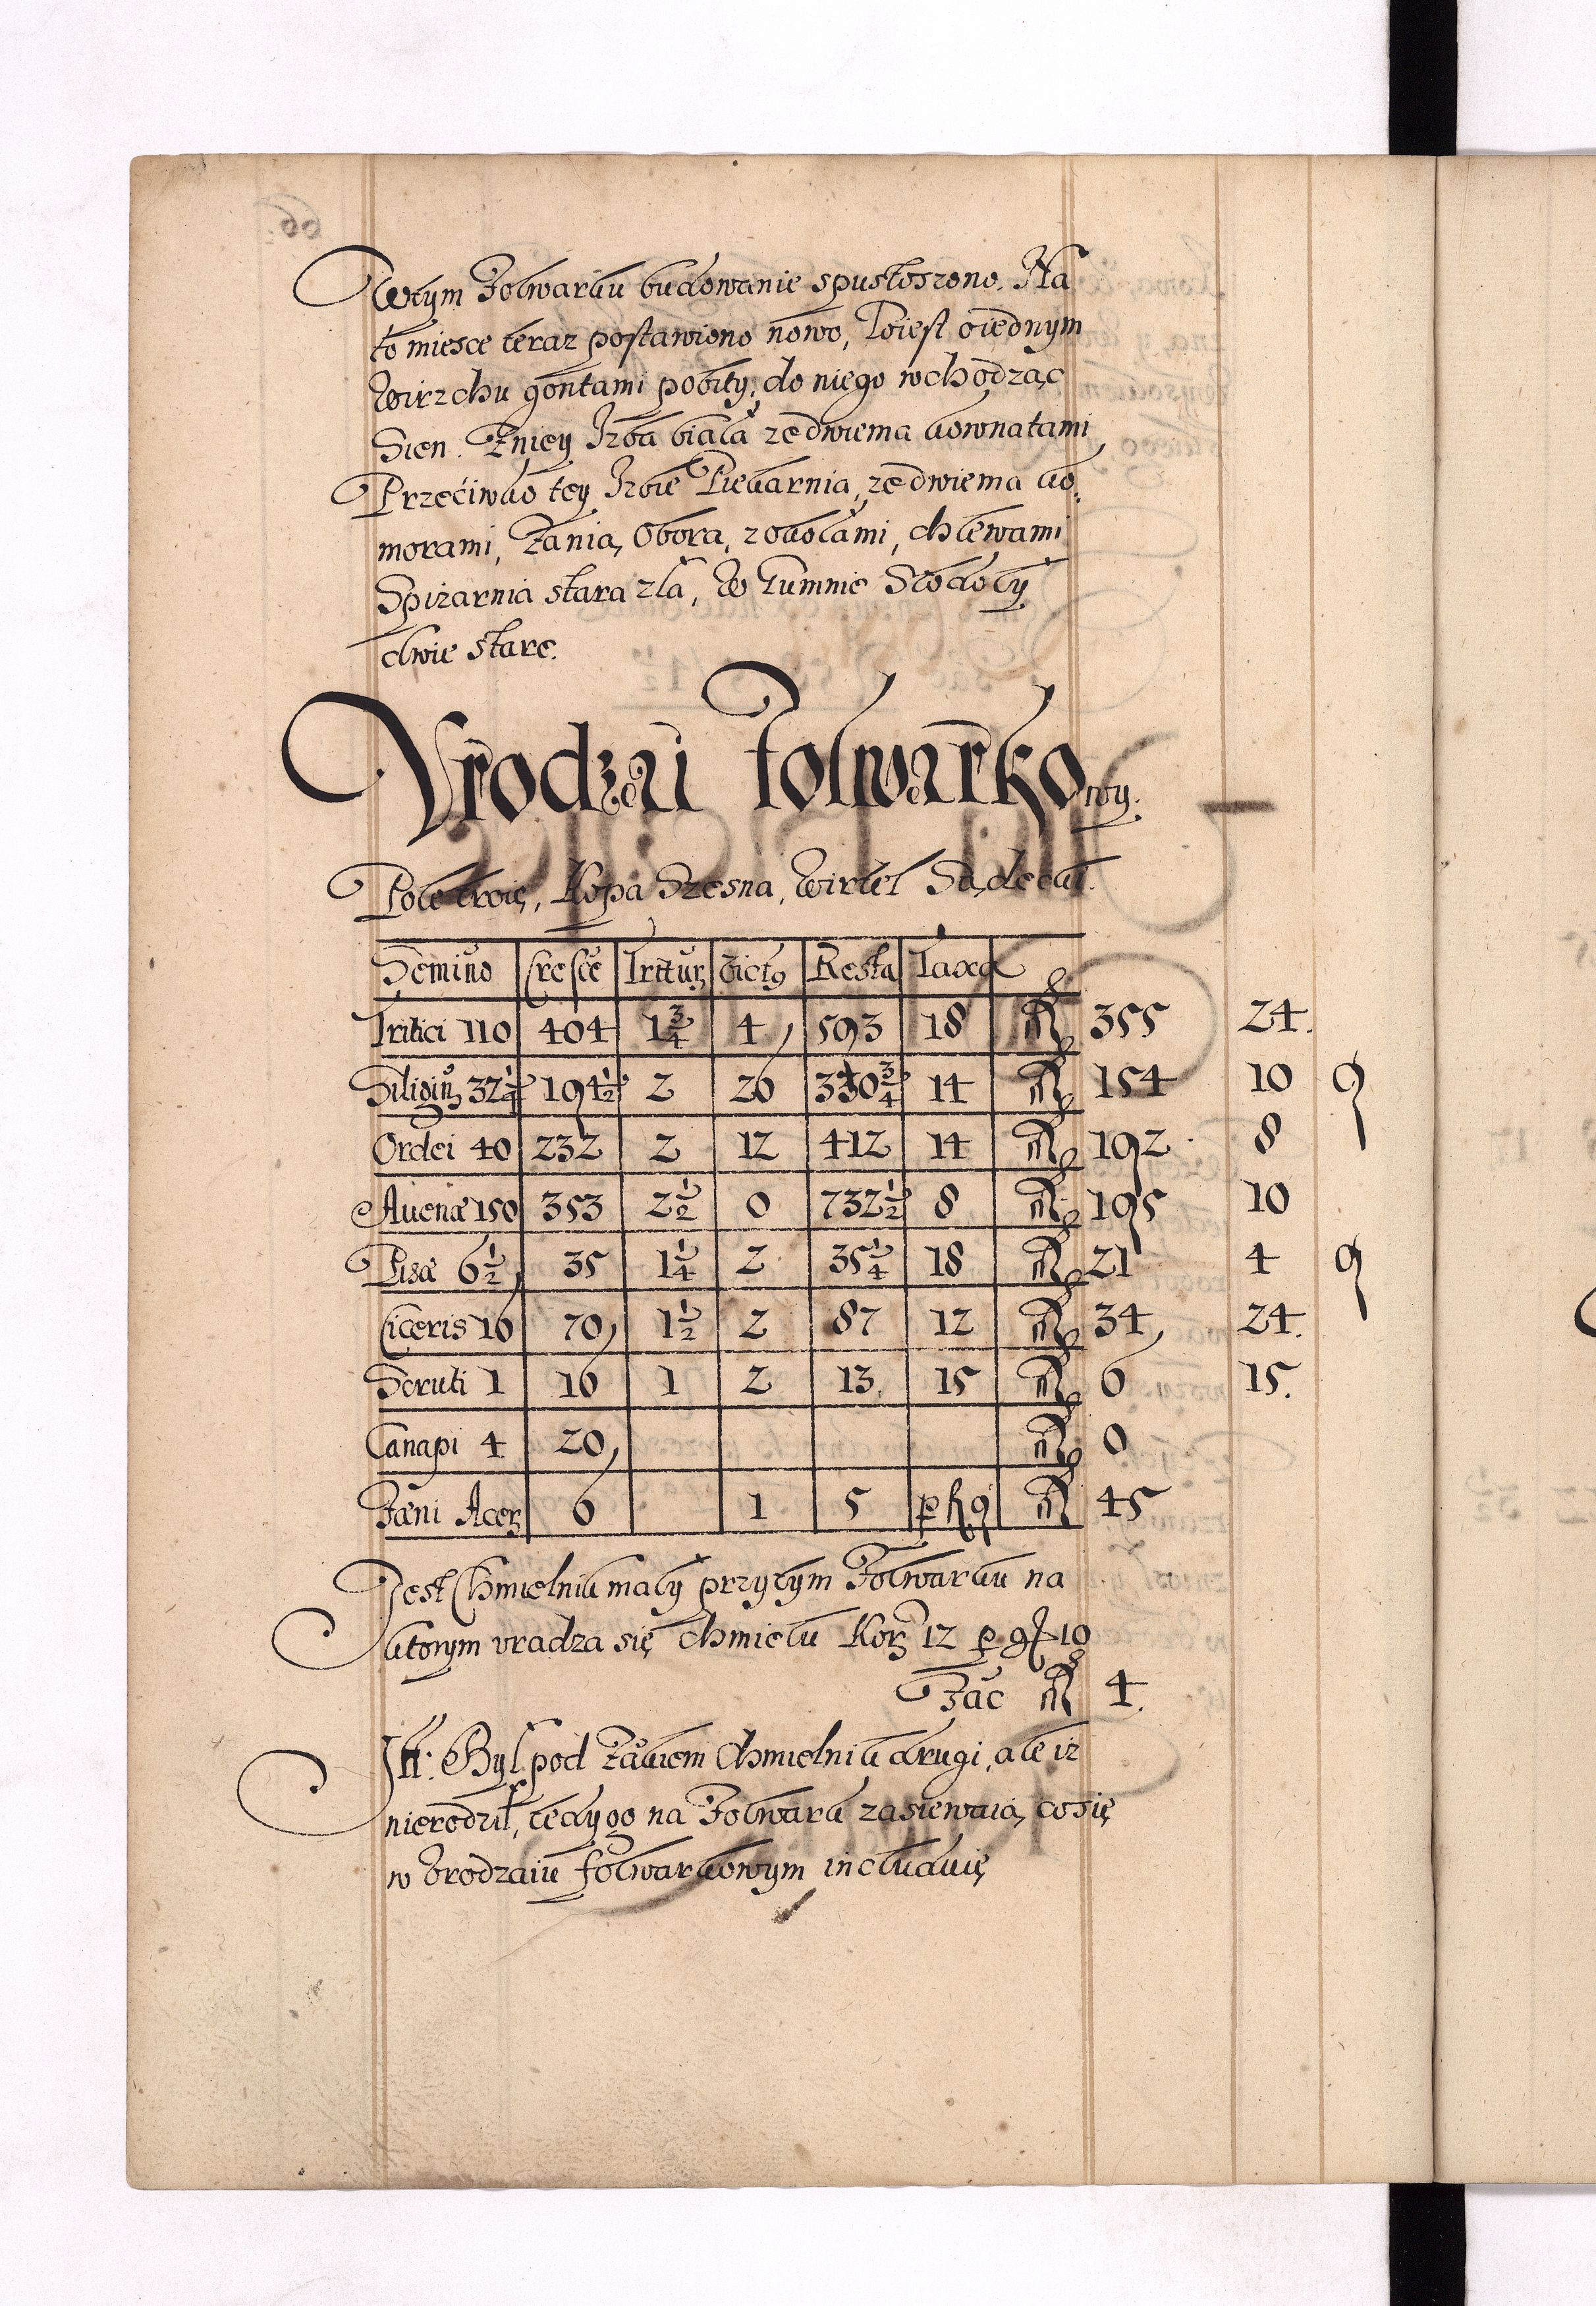 W tym Folwarku budowanie spustoszono. Na
to miesce teraz postawiono nowo, Twiest oiednym
Wirzchu gontami pobity, do niego wchodząc
Sien. Zniey Izba biała ze dwiema komnatami,
Przeciwko tey Izbie Piekarnia, ze dwiema ko:
morami, Łania, Obora, zokołami, chlewami
Spiżarnia stara zla, W Gumnie Stodoly
dwie stare.
Vrodzai Folwarkowy.
Pole troię, Kopa Szesna, Wirtel Sądecki.
Semino Cresce Trituꝝ Victꝰ Resta Taxa
Tritici 110 404 1 3/4 4 593 18 fl 355 24.
Siliginꝫ 32 1/4 194 1/2 2 26 330 3/4 14 fl 154 10 9
Ordei 40 232 2 12 412 14 fl 192 8
Auenæ 150 353 2 1/2 0 732 1/2 8 fl 195 10
Pisæ 6 1/2 35 1 1/4 2 35 1/4 18 fl 21 4 9
Ciceris 16 70 1 1/2 2 87 12 fl 34 24.
Scruti 1 16 1 2 13 15 fl 6 15.
Canapi 4 20 fl 0
Fæni Acerꝫ 6 1 5 p fl 9 fl 45
Jest Chmielnik maly przytym Folwarku na
ktorym vradza się chmielu Korꝫ 12 p gr 10
Fac fl 4.
Itt. Był pod Zamkiem Chmielnik drugi, ale iz
nierodził, tedy go na Folwark zasiewaią, co się
w Vrodzaiu folwarkowym includuię